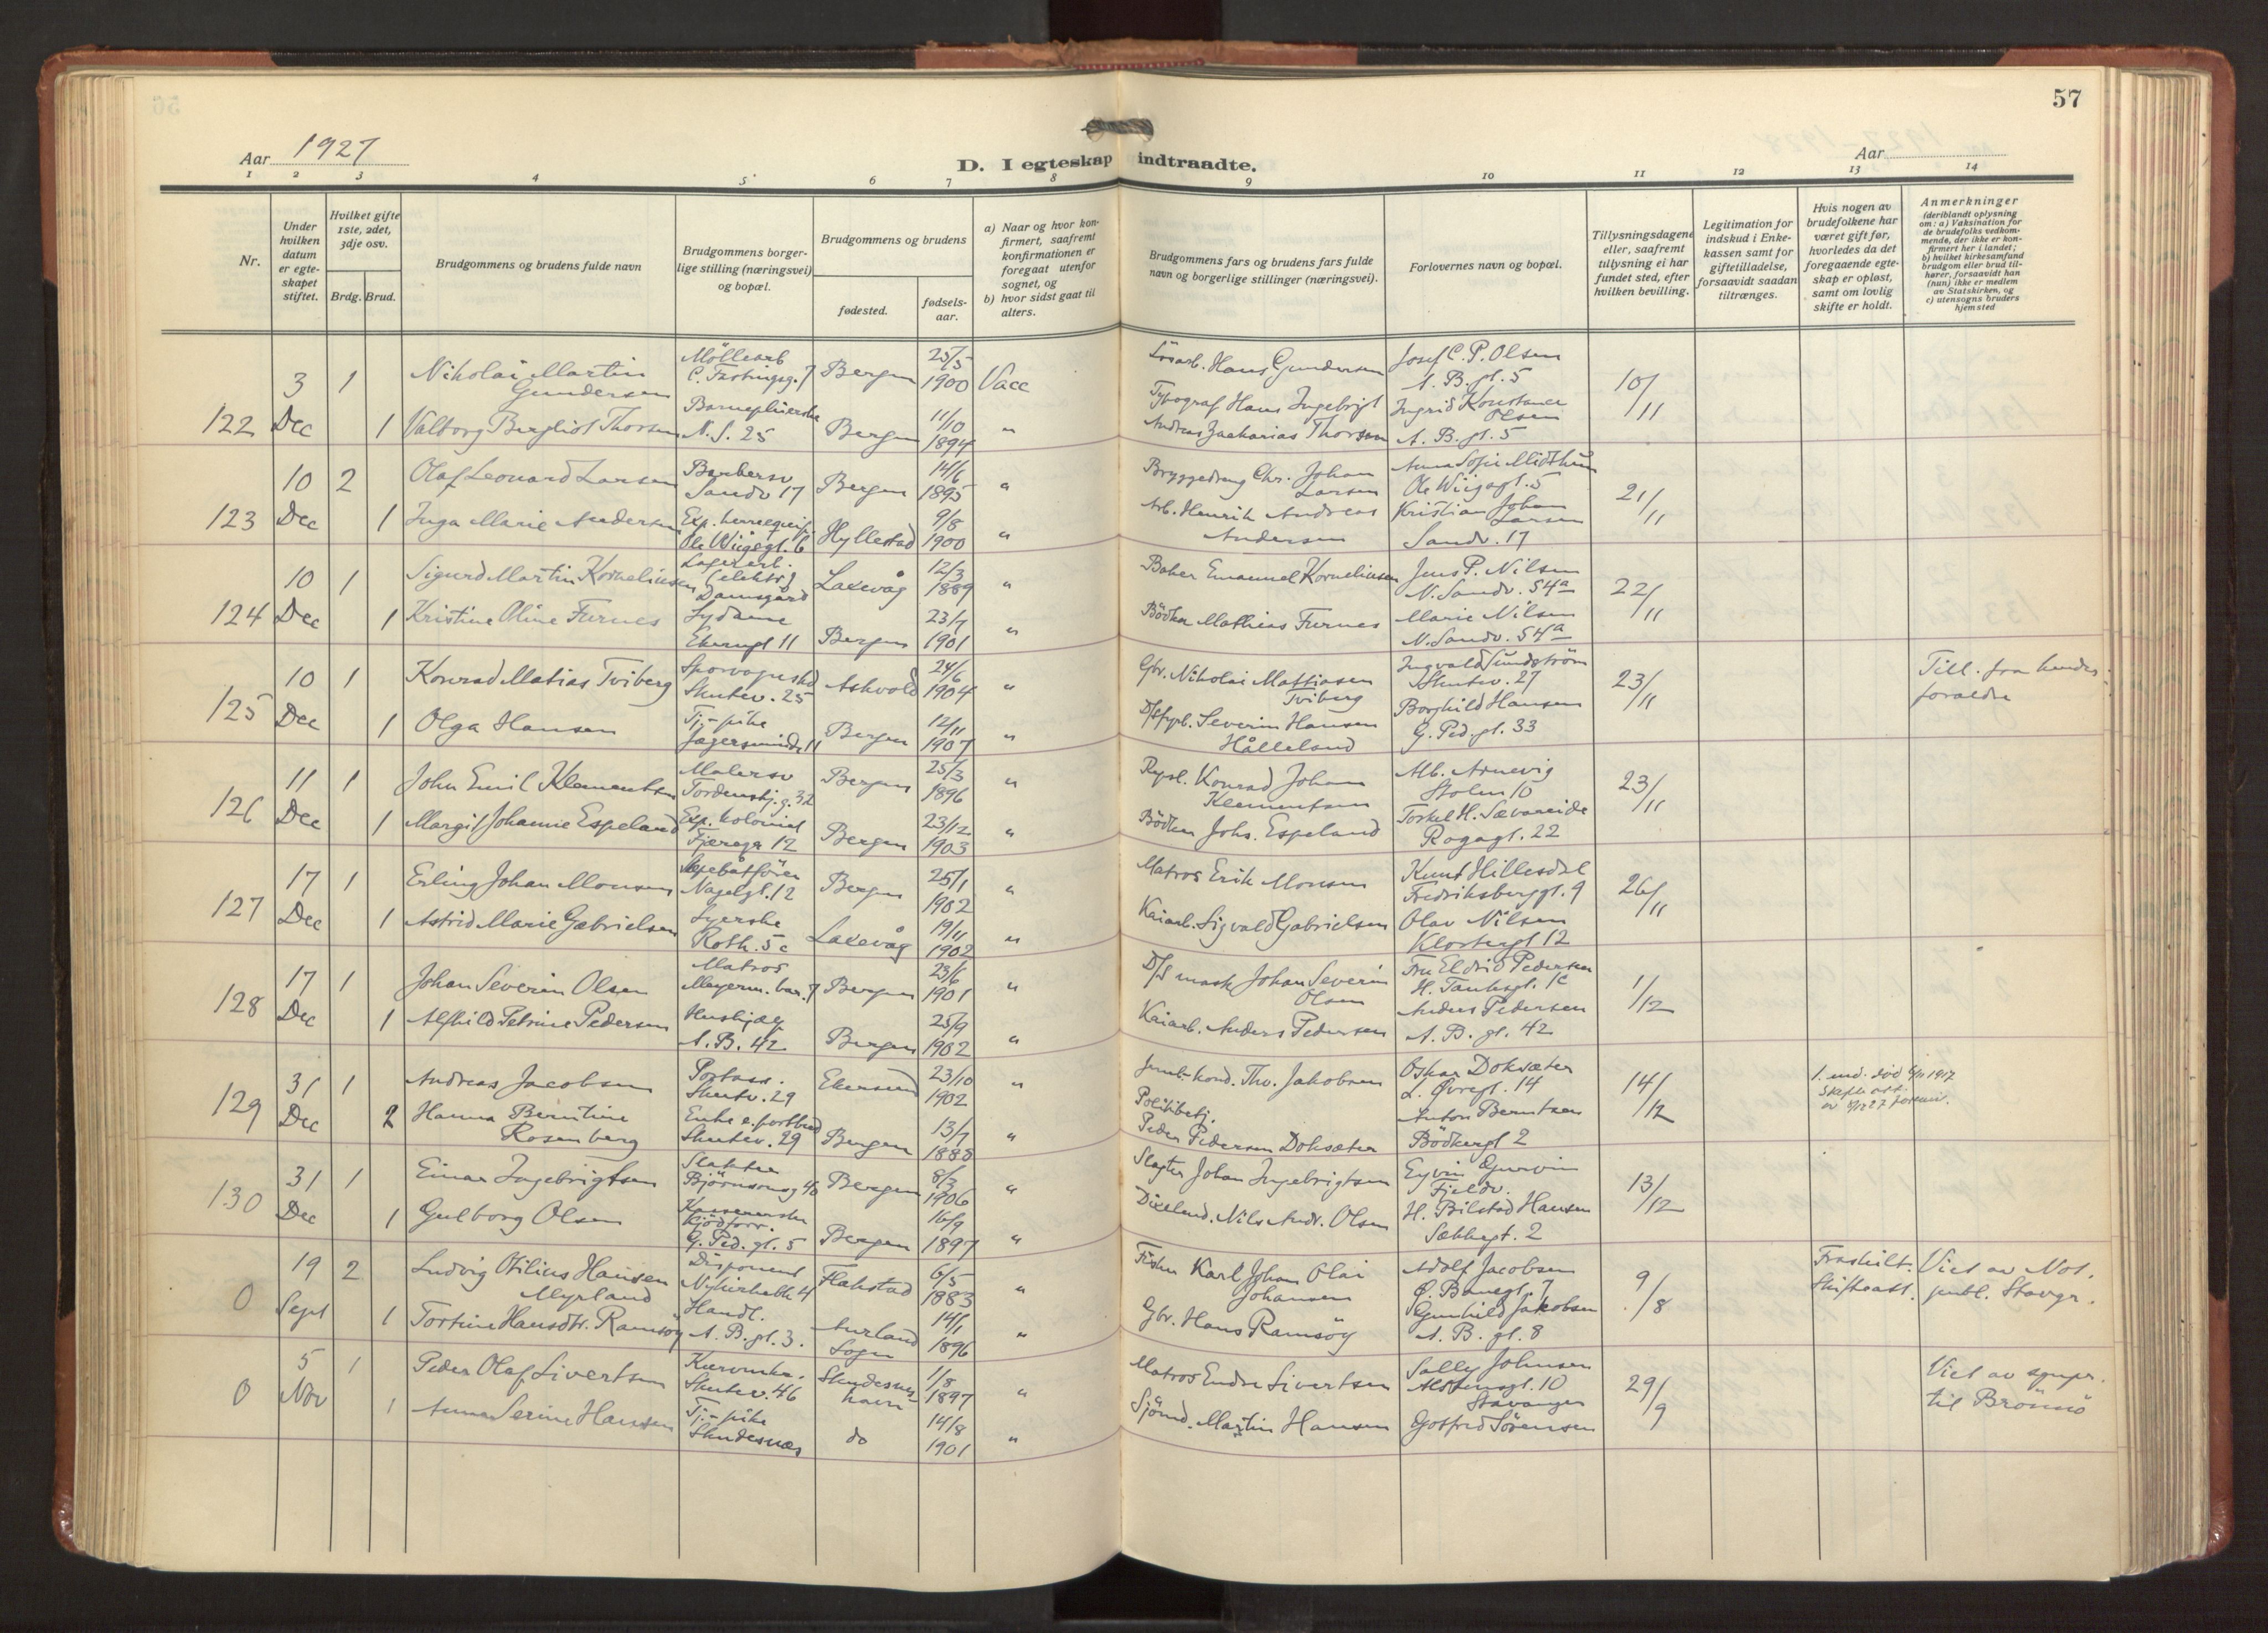 57
Aar 1927
D. I egteskap indtraadte.
Aar
1 2 3 4 5 6 7 8 9 10 11 12 13 14
Nr.
Under hvilken datum er egteskapet stiftet.
Hvilket gifte 1ste, 2det, 3dje osv.
Brdg. Brud.
Brudgommens og brudens fulde navn
Brudgommens borgerlige stilling (næringsvei) og bopæl.
Brudgommens og brudens
fødested.
fødselsaar.
a) Naar og hvor konfirmert, saafremt konfirmationen er foregaat utenfor sognet, og
b) hvor sidst gaat til alters.
Brudgommens fars og brudens fars fulde navn og borgerlige stillinger (næringsvei).
Forlovernes navn og bopæl.
Tillysningsdagene eller, saafremt tillysning ei har fundet sted, efter hvilken bevilling.
Legitimation for indskud i Enkekassen samt for giftetilladelse, forsaavidt saadan tiltrænges.
Hvis nogen av brudefolkene har været gift før, hvorledes da det foregaaende egteskap er opløst, samt om lovlig skifte er holdt.
Anmerkninger
(deriblandt oplysning om: a) Vaksination for de brudefolks vedkommende, der ikke er konfirmert her i landet; b) hvilket kirkesamfund brudgom eller brud tilhører, forsaavidt han (hun) ikke er medlem av Statskirken, og c) utensogns bruders hjemsted
122 3 Dec 1 Nikolai Martin Gundersen Møllearb C. Fastingsg. 7 Bergen 25/5 1900 Vacc Hans Gundersen Josef C. P. Olsen A. B. gt. 5 10/11
1 Valborg Bergliot Thorsen N. S. 25 Bergen 11/10 1894 " Typograf Hans Ingebrigt Andreas Zacharias Thorsen Ingrid Konstance Olsen A. B. gt. 5
123 10 Dec 2 Olaf Leonard Larsen Barbersv Sandv 17 Bergen 14/6 1895 " Chr. Johan Larsen Anna Sofie Midthun Ole Wiigsgt. 5 21/11
1 Inga Marie Andersen Ole Wiigsgt. 6 Hyllestad 9/8 1900 " Arb. Henrik Andreas Andersen Kristian Johan Larsen Sandv. 17
124 10 Dec 1 Sigurd Martin Korneliusen Lagerarb. (elektr) Damsgård Laxevåg 12/3 1889 " Baker Emanuel Korneliusen Jens P. Nilsen N. Sandv. 54a 22/11
1 Kristine Oline Furnes Sydame 11 Bergen 23/7 1901 " Bödker Mathias Furnes Marie Nilsen N. Sandv. 54a
125 10 Dec 1 Konrad Matias Tviberg Skutev. 25 Askvold 24/6 1904 " Gbr. Nikolai Mattiasen Tviberg Ingvald Sundström Skutev. 27 23/11 Till. fra hendes foraldre
1 Olga Hansen Tj.-pike 11 Bergen 12/11 1907 " Severin Hansen Hålleland Borghild Hansen G. Ped. gt. 33
126 11 Dec 1 John Emil Klementsen Malersv Tordenskj. g. 32 Bergen 25/3 1896 " Repsl. Konrad Johan Klementsen Alb. Arnevig Stolen 10 23/11
1 Margit Johanne Espeland Exp. kolonial Fjæregr 12 Bergen 23/12 1903 " Bödker Johs. Espeland Torkel H. Sævareide Rogagt. 22
127 17 Dec 1 Erling Johan Monsen Nagelgt. 12 Bergen 25/1 1902 " Matros Erik Monsen Knut Hillesdal Fredriksberggt. 9 26/11
1 Astrid Marie Gabrielsen Syerske Roth. 5c Laxevåg 19/11 1902 " Kaiarb. Sigvald Gabrielsen Olav Nilsen Klostergt 12
128 17 Dec 1 Johan Severin Olsen Matros Meyerm. bar. 7 Bergen 23/6 1901 " D/S mask Johan Severin Olsen Fru Eldrid Pedersen H. Tanksgt. 1c 1/12
1 Alfhild Petrine Pedersen Huslig A. B. 42 Bergen 25/9 1902 " Kaiarb. Anders Pedersen Anders Pedersen A. B. gt. 42
129 31 Dec 1 Andreas Jacobsen Portass. Skutev. 29 Ekersund 23/10 1902 " Jernb. kond. Thv. Jakobsen Oskar Doksæter L. Øvregt. 14 14/12 1. md. død 5/11 1917 Skifte att.
2 Hanna Berntine Rosenberg Enke e. Skutev. 29 Bergen 13/7 1888 " Politibetj. Peder Pedersen Doksæter Anton Berntsen Bödkergt 2
130 31 Dec 1 Einar Ingebrigtsen Slakter Björnsonsg 40 Bergen 8/3 1906 " Slagter Johan Ingebrigtsen Eyvin Gurvin Fjeldv. 13/12
1 Gulborg Olsen Kjödforr. G. Ped. gt. 5 Bergen 16/9 1897 " Nils Andr. Olsen H. Bilstad Hansen Sækkegt. 2
0 19 Sept 2 Ludvig Otilius Hansen Myrland Disponent Nykirkebk 4 Flakstad 6/5 1883 " Fisker Karl Johan Olai Johansen Adolf Jacobsen Ø. Banegt. 7 9/8 Fraskilt. Skifteatt. Viet av Not. publ. Stavgr.
1 Tortine Hansdtr. Ramsöy Handl. A. B. gt. 3. Aurland Sogn 14/1 1896 " Gbr. Hans Ramsöy Gunhild Jakobsen A. B. gt. 8
0 5 Nov 1 Peder Olaf Sivertsen Skutev. 46 Skudesneshavn 1/8 1897 " Matros Endre Sivertsen Sally Johnsen 10 Stavanger 29/9 Viet av sgnpr. til Brönnö
1 Anna Serine Hansen Tj.-pike Skudesnæs do 14/8 1901 " Sjömd. Martin Hansen Gotfred Sörensen